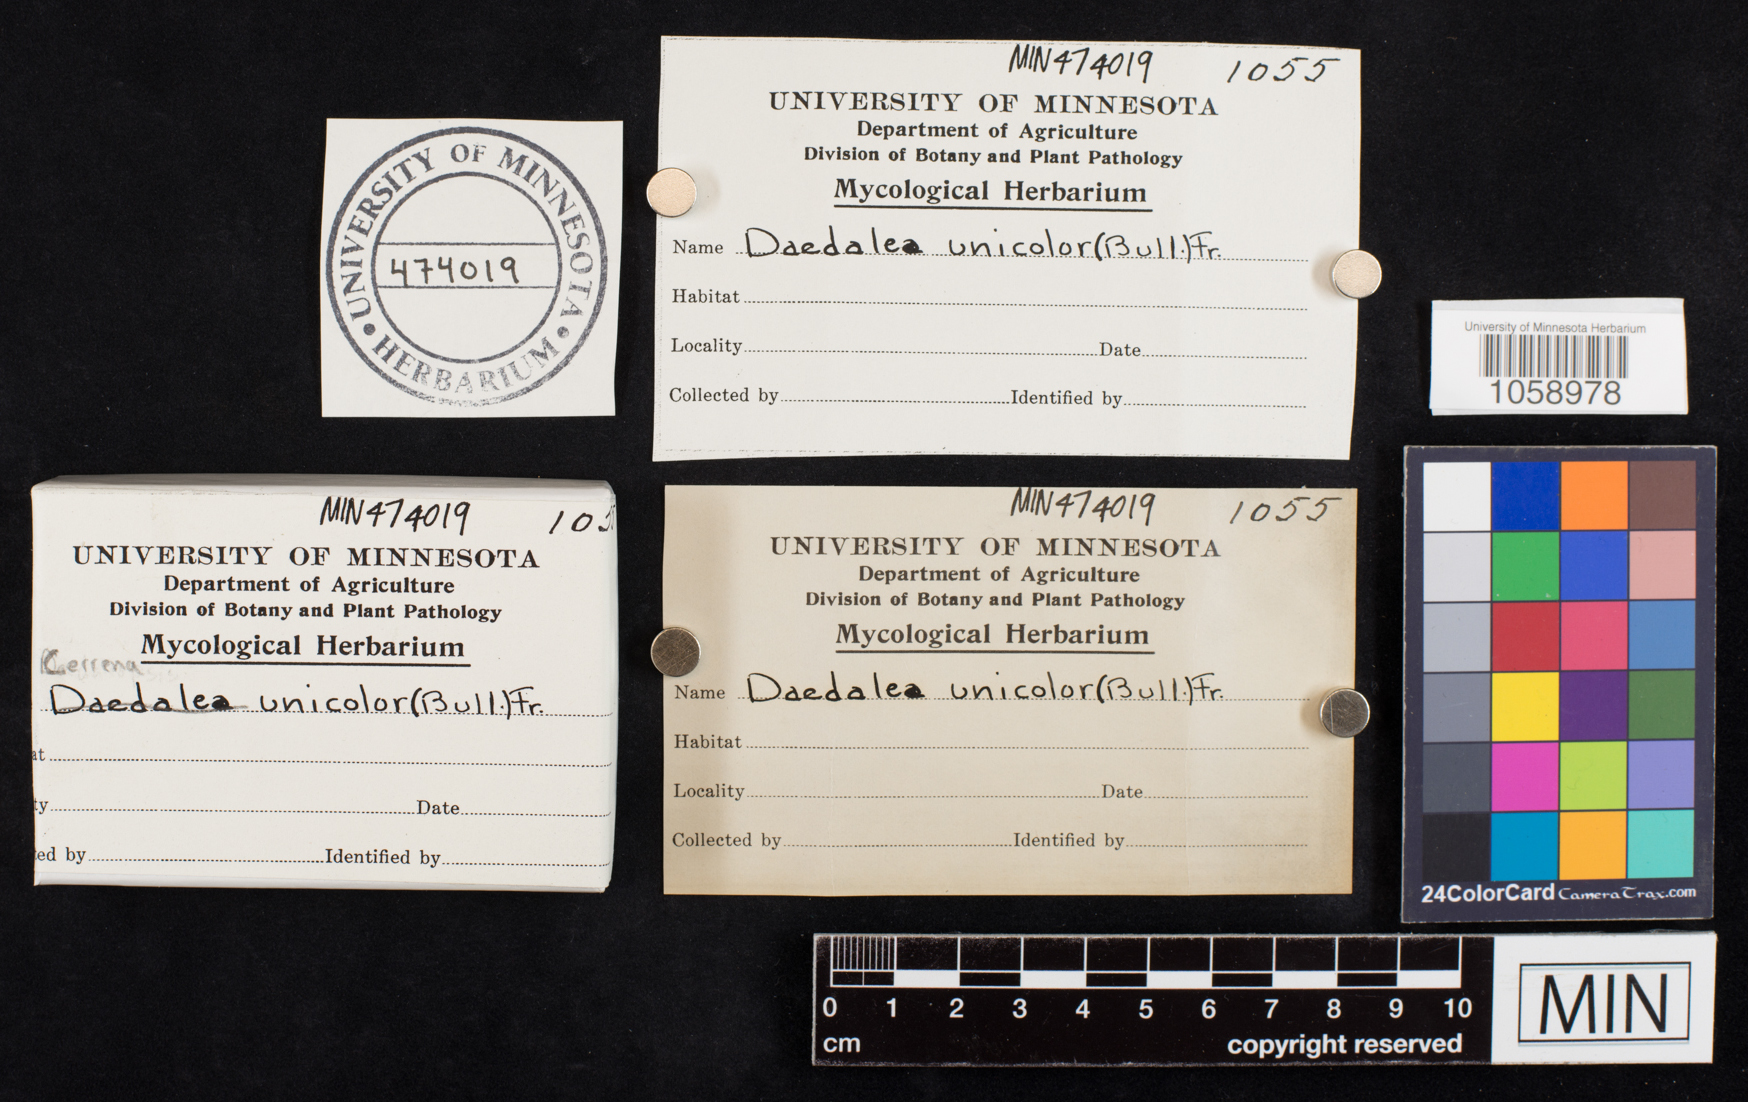 UNIVERSITY OF MINNESOTA
• HERBARIUM •
474019
MIN474019 1055
UNIVERSITY OF MINNESOTA
Department of Agriculture
Division of Botany and Plant Pathology
Mycological Herbarium
Name Daedalea unicolor (Bull.) Fr.
Habitat
Locality Date
Collected by Identified by
University of Minnesota Herbarium
1058978
MIN474019 105
UNIVERSITY OF MINNESOTA
Department of Agriculture
Division of Botany and Plant Pathology
Mycological Herbarium
Cerrena
Daedalea unicolor (Bull.) Fr.
at
ty Date
ed by Identified by
MIN474019 1055
UNIVERSITY OF MINNESOTA
Department of Agriculture
Division of Botany and Plant Pathology
Mycological Herbarium
Name Daedalea unicolor (Bull.) Fr.
Habitat
Locality Date
Collected by Identified by
24ColorCard CameraTrax.com
0 1 2 3 4 5 6 7 8 9 10
cm copyright reserved
MIN